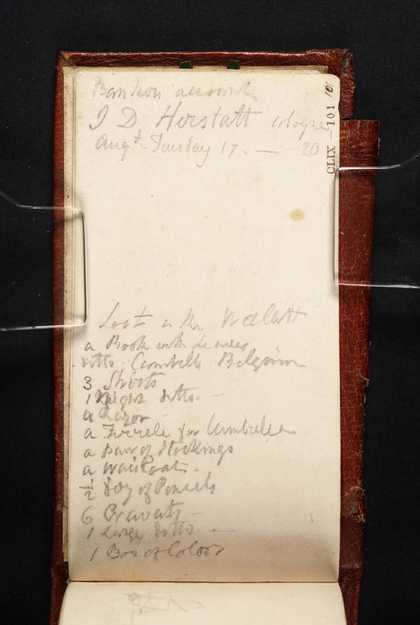 Bankers account
J D Herstatt Cologne
Augt Tuesday 17. — 20
CLIX — 101
Lost in the Wallett
a Book with Leaves
ditto. Cambells Belgium
3 Shirts
1 Night ditto. —
a Razor
a Ferrele for Umbrella
a Pair of Stockings
a Waistcoat.
½ Doz of Pencils
6 Cravats
1 Large ditto —
1 Box of Colors